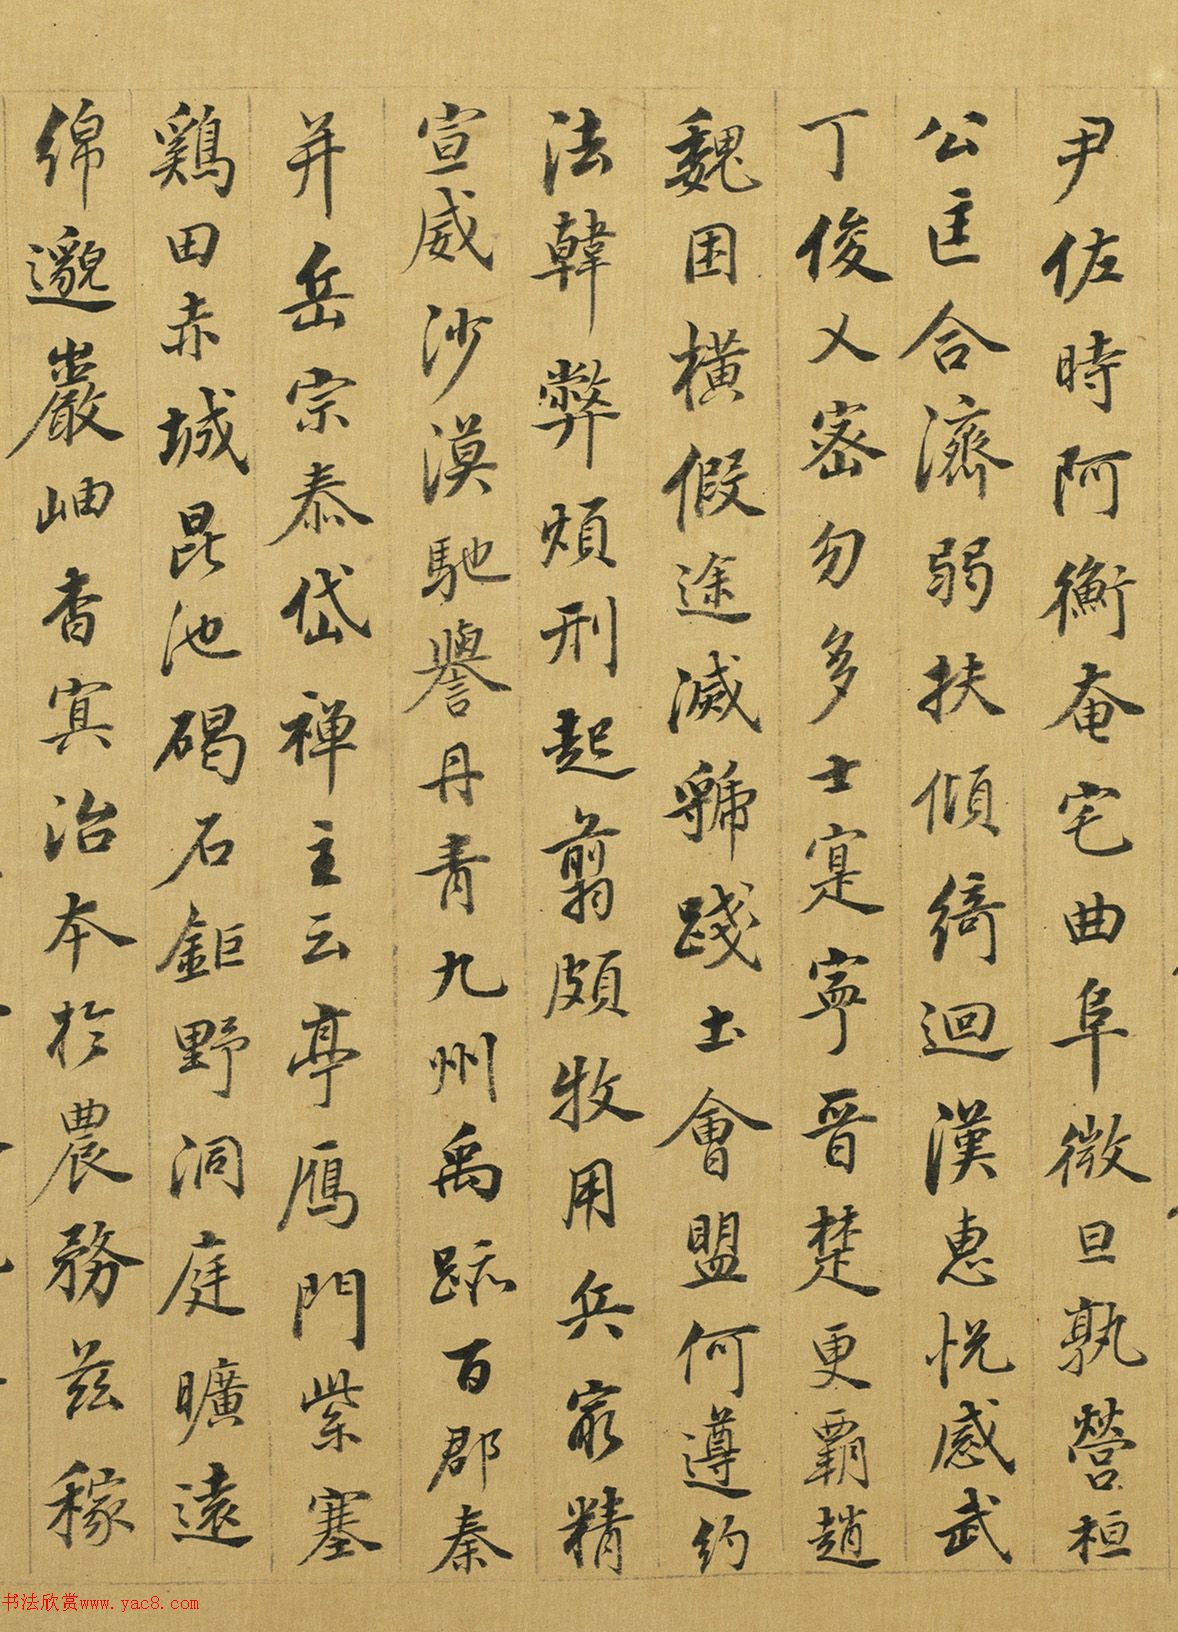 尹佐時阿衡奄宅曲阜微旦孰營桓
公匡合濟弱扶傾綺迴漢惠悅感武
丁俊乂密勿多士寔寧晉楚更霸趙
魏困橫假途滅虢踐土會盟何遵約
法韓弊煩刑起翦頗牧用兵最精
宣威沙漠馳譽丹青九州禹跡百郡秦
并岳宗泰岱禅主云亭雁門紫塞
鷄田赤城昆池碣石鉅野洞庭曠遠
綿邈巖岫杳冥治本於農務茲稼
书法欣赏www.yac8.com